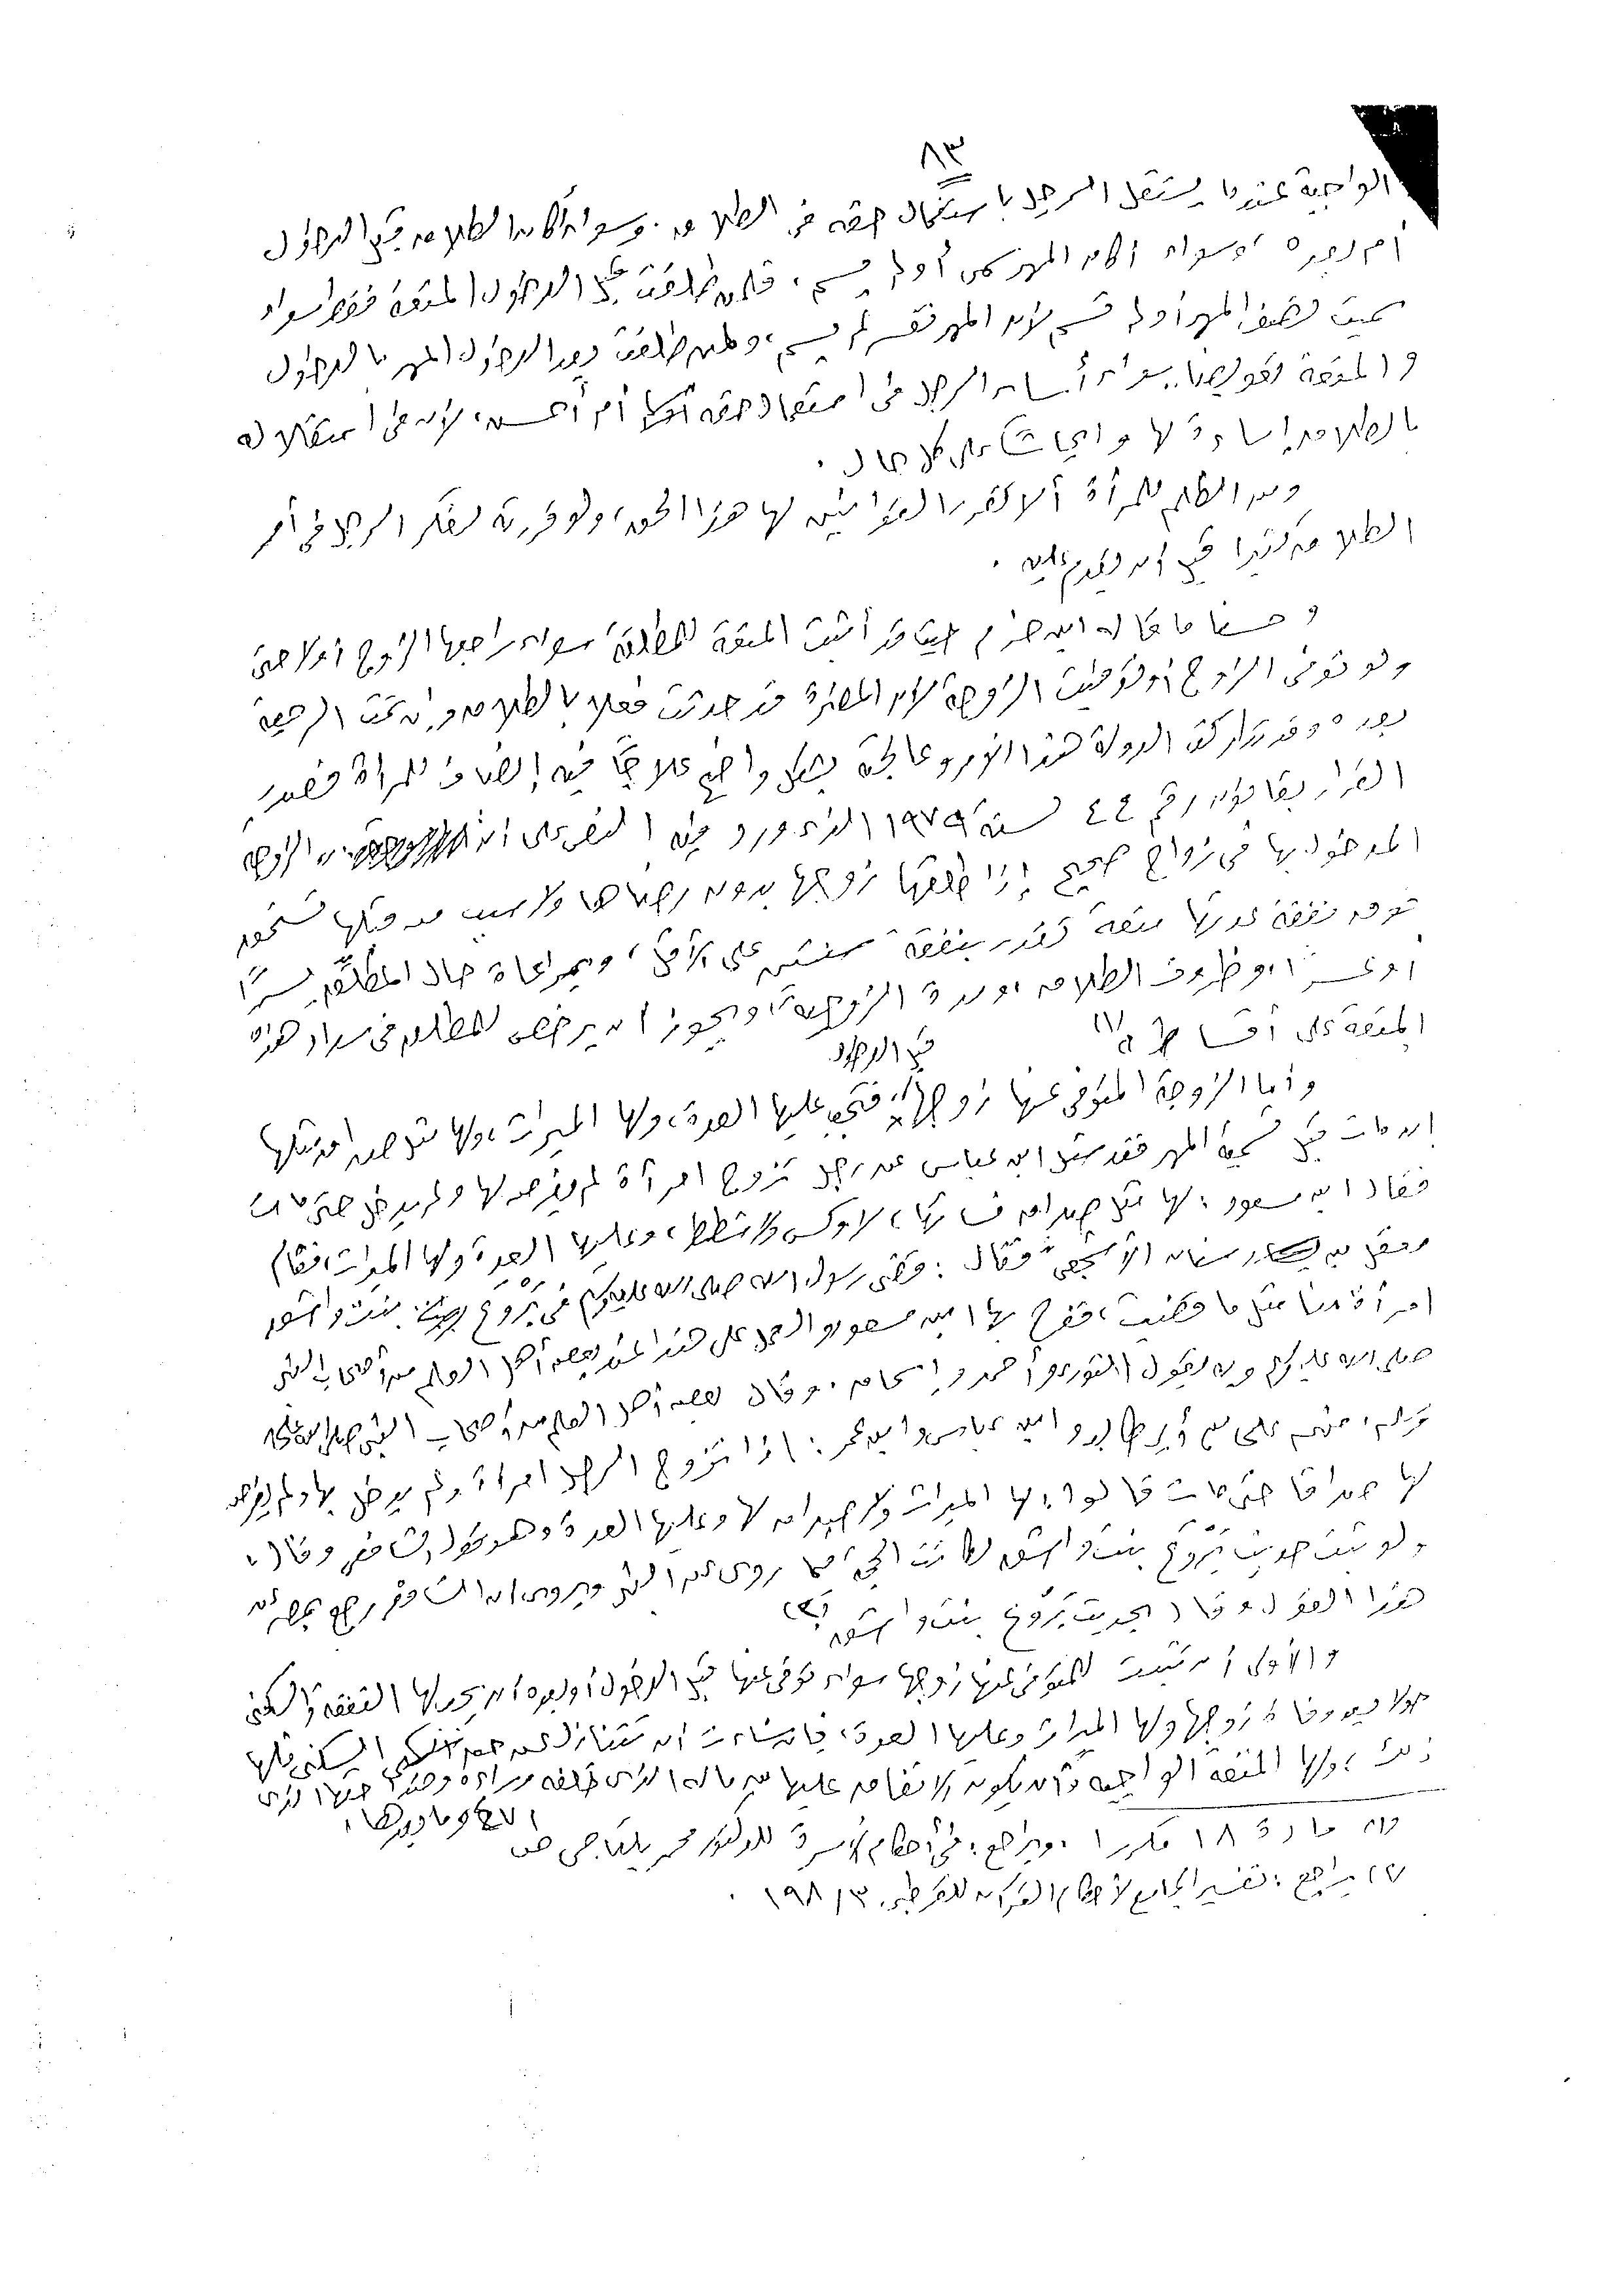 ٨٣
الواجبة عندما يستقل الرجل باستعمال حقه فى الطلاق. وسواء أكان الطلاق قبل الدخول
أم بعده، وسواء أكان المهر سمى أو لم يسم، فلمن طلقت قبل الدخول المتعة فقط سواء
سميت نصف المهر أو لم تسم لأن المهر نفسه لم يسم، ولمن طلقت بعد الدخول المهر بالدخول
والمتعة تعويضا. سواء أساء الرجل فى استعمال حقه أم أحسن، لأن فى استقلاله
بالطلاق إساءة لها وإيحاشا على كل حال.
ومن الظلم للمرأة ألا تقرر القوانين لها هذا الحق، ولو قررته لفكر الرجل فى أمر
الطلاق كثيرا قبل أن يقدم عليه.
وحسنا ما قاله ابن حزم حيث قد أثبت المتعة للمطلقة سواء راجعها الزوج أم لا حتى
ولو توفى الزوج أو توفيت الزوجة لأن المضرة قد حدثت فعلا بالطلاق وإن تمت الرجعة
بعده وقد تداركت الدولة هذا الأمر وعالجته بشكل واضح علاجا فيه إنصاف للمرأة فصدر
القرار بقانون رقم ٤٤ لسنة ١٩٧٩ الذى ورد فيه النص على أن الزوجة
المدخول بها فى زواج صحيح إذا طلقها زوجها بدون رضاها ولا بسبب من قبلها تستحق
فوق نفقة عدتها متعة تقدر بنفقة سنتين على الأقل، وبمراعاة حال المطلق يسرًا
أو عسرًا، وظروف الطلاق، ومدة الزوجية، ويجوز أن يرخص للمطلق فى سداد هذه
المتعة على أقساط (١)
قبل الدخول
وأما الزوجة المتوفى عنها زوجها فتجب عليها العدة، ولها الميراث، ولها مثل صداق مثلها
إن مات قبل تسمية المهر فقد سئل ابن عباس عن رجل تزوج امرأة لم يفرض لها ولم يدخل حتى مات
فقال ابن مسعود: لها مثل صداق نسائها، لا وكس ولا شطط، وعليها العدة ولها الميراث، فقام
معقل بن سنان الأشجعى فقال: قضى رسول الله صلى الله عليه وسلم فى بَرْوَع بنت واشق
امرأة منا مثل ما قضيت، ففرح بها ابن مسعود والعمل على هذا عند بعض أهل العلم من أصحاب النبى
صلى الله عليه وسلم وبه يقول الثورى وأحمد وإسحاق. وقال بعض أهل العلم من أصحاب النبى صلى الله عليه
وسلم، منهم على بن أبى طالب وابن عباس وابن عمر: إذا تزوج الرجل امرأة ولم يدخل بها ولم يفرض
لها صداقا حتى مات قالوا: لها الميراث ولا صداق لها وعليها العدة وهو قول الشافعى وقال،
ولو ثبت حديث بَرْوَع بنت واشق لكانت الحجة فيما روى عن النبى ويروى أن الشافعى رجع بمصر عن
هذا القول وقال بحديث بَرْوَع بنت واشق (٢)
والأولى أن تثبت للمتوفى عنها زوجها سواء توفى عنها قبل الدخول أو بعده أن يجب لها النفقة والسكنى
حولا بعد وفاة زوجها ولها الميراث وعليها العدة، فإن شاءت أن تتنازل عن السكنى فلها
ذلك، ولها المتعة الواجبة وأن يكون الإنفاق عليها من ماله الذى خلفه وراءه وهذا حقها الذى
(١) مادة ١٨ مكررا. ويراجع: فى أحكام الأسرة للدكتور محمد بلتاجى ص وما بعدها.
(٢) يراجع: تفسير الجامع لأحكام القرآن للقرطبى ٣/ ١٩٨.